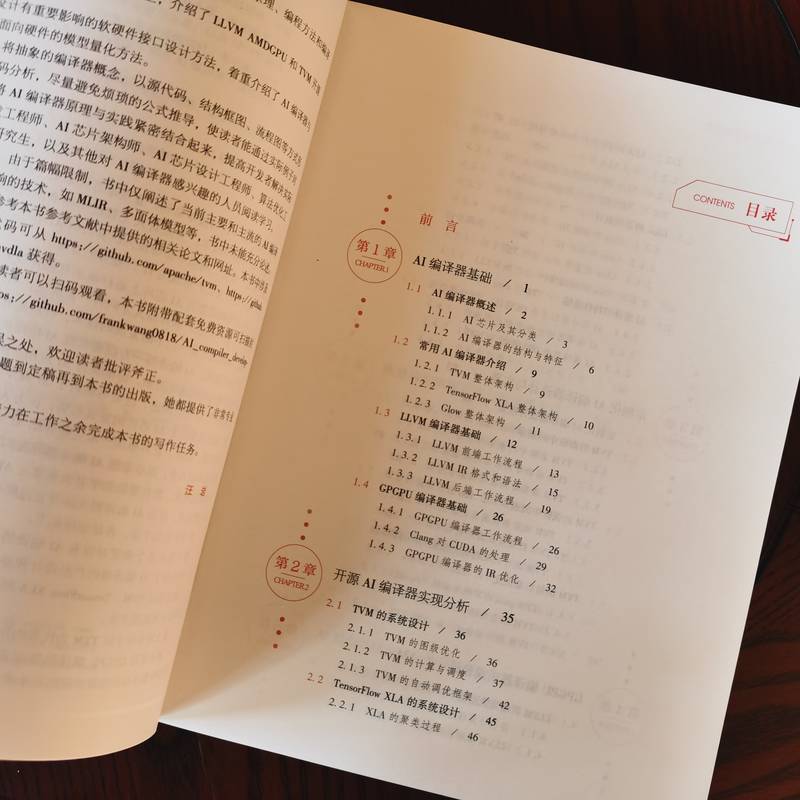 介绍了 LLVM AMDGPU 和 TVM 开源
设计有重要影响的软硬件接口设计方法，着重介绍了 AI 编译器与
面向硬件的模型量化方法。
将抽象的编译器概念，以源代码、结构框图、流程图等方式
码分析，尽量避免烦琐的公式推导，使读者能通过实际例子
将 AI 编译器原理与实践紧密结合起来，提高开发者解决实际
工程师、AI 芯片架构师、AI 芯片设计工程师、算法优化工
研究生，以及其他对 AI 编译器感兴趣的人员阅读学习。
由于篇幅限制，书中仅阐述了当前主要和主流的 AI 编译
响的技术，如 MLIR、多面体模型等，书中未能充分论述。
参考本书参考文献中提供的相关论文和网址。本书中涉及
代码可从 https://github.com/apache/tvm、https://github.
nvdla 获得。
读者可以扫码观看，本书附带配套免费资源可扫描封
ps://github.com/frankwang0818/AI_compiler_develop-
误之处，欢迎读者批评斧正。
题到定稿再到本书的出版，她都提供了非常专业
努力在工作之余完成本书的写作任务。
汪
CONTENTS 目录
前 言
第 1 章
CHAPTER.1
AI 编译器基础 / 1
1.1 AI 编译器概述 / 2
1.1.1 AI 芯片及其分类 / 3
1.1.2 AI 编译器的结构与特征 / 6
1.2 常用 AI 编译器介绍 / 9
1.2.1 TVM 整体架构 / 9
1.2.2 TensorFlow XLA 整体架构 / 10
1.2.3 Glow 整体架构 / 11
1.3 LLVM 编译器基础 / 12
1.3.1 LLVM 前端工作流程 / 13
1.3.2 LLVM IR 格式和语法 / 15
1.3.3 LLVM 后端工作流程 / 19
1.4 GPGPU 编译器基础 / 26
1.4.1 GPGPU 编译器工作流程 / 26
1.4.2 Clang 对 CUDA 的处理 / 29
1.4.3 GPGPU 编译器的 IR 优化 / 32
第 2 章
CHAPTER.2
开源 AI 编译器实现分析 / 35
2.1 TVM 的系统设计 / 36
2.1.1 TVM 的图级优化 / 36
2.1.2 TVM 的计算与调度 / 37
2.1.3 TVM 的自动调优框架 / 42
2.2 TensorFlow XLA 的系统设计 / 45
2.2.1 XLA 的聚类过程 / 46